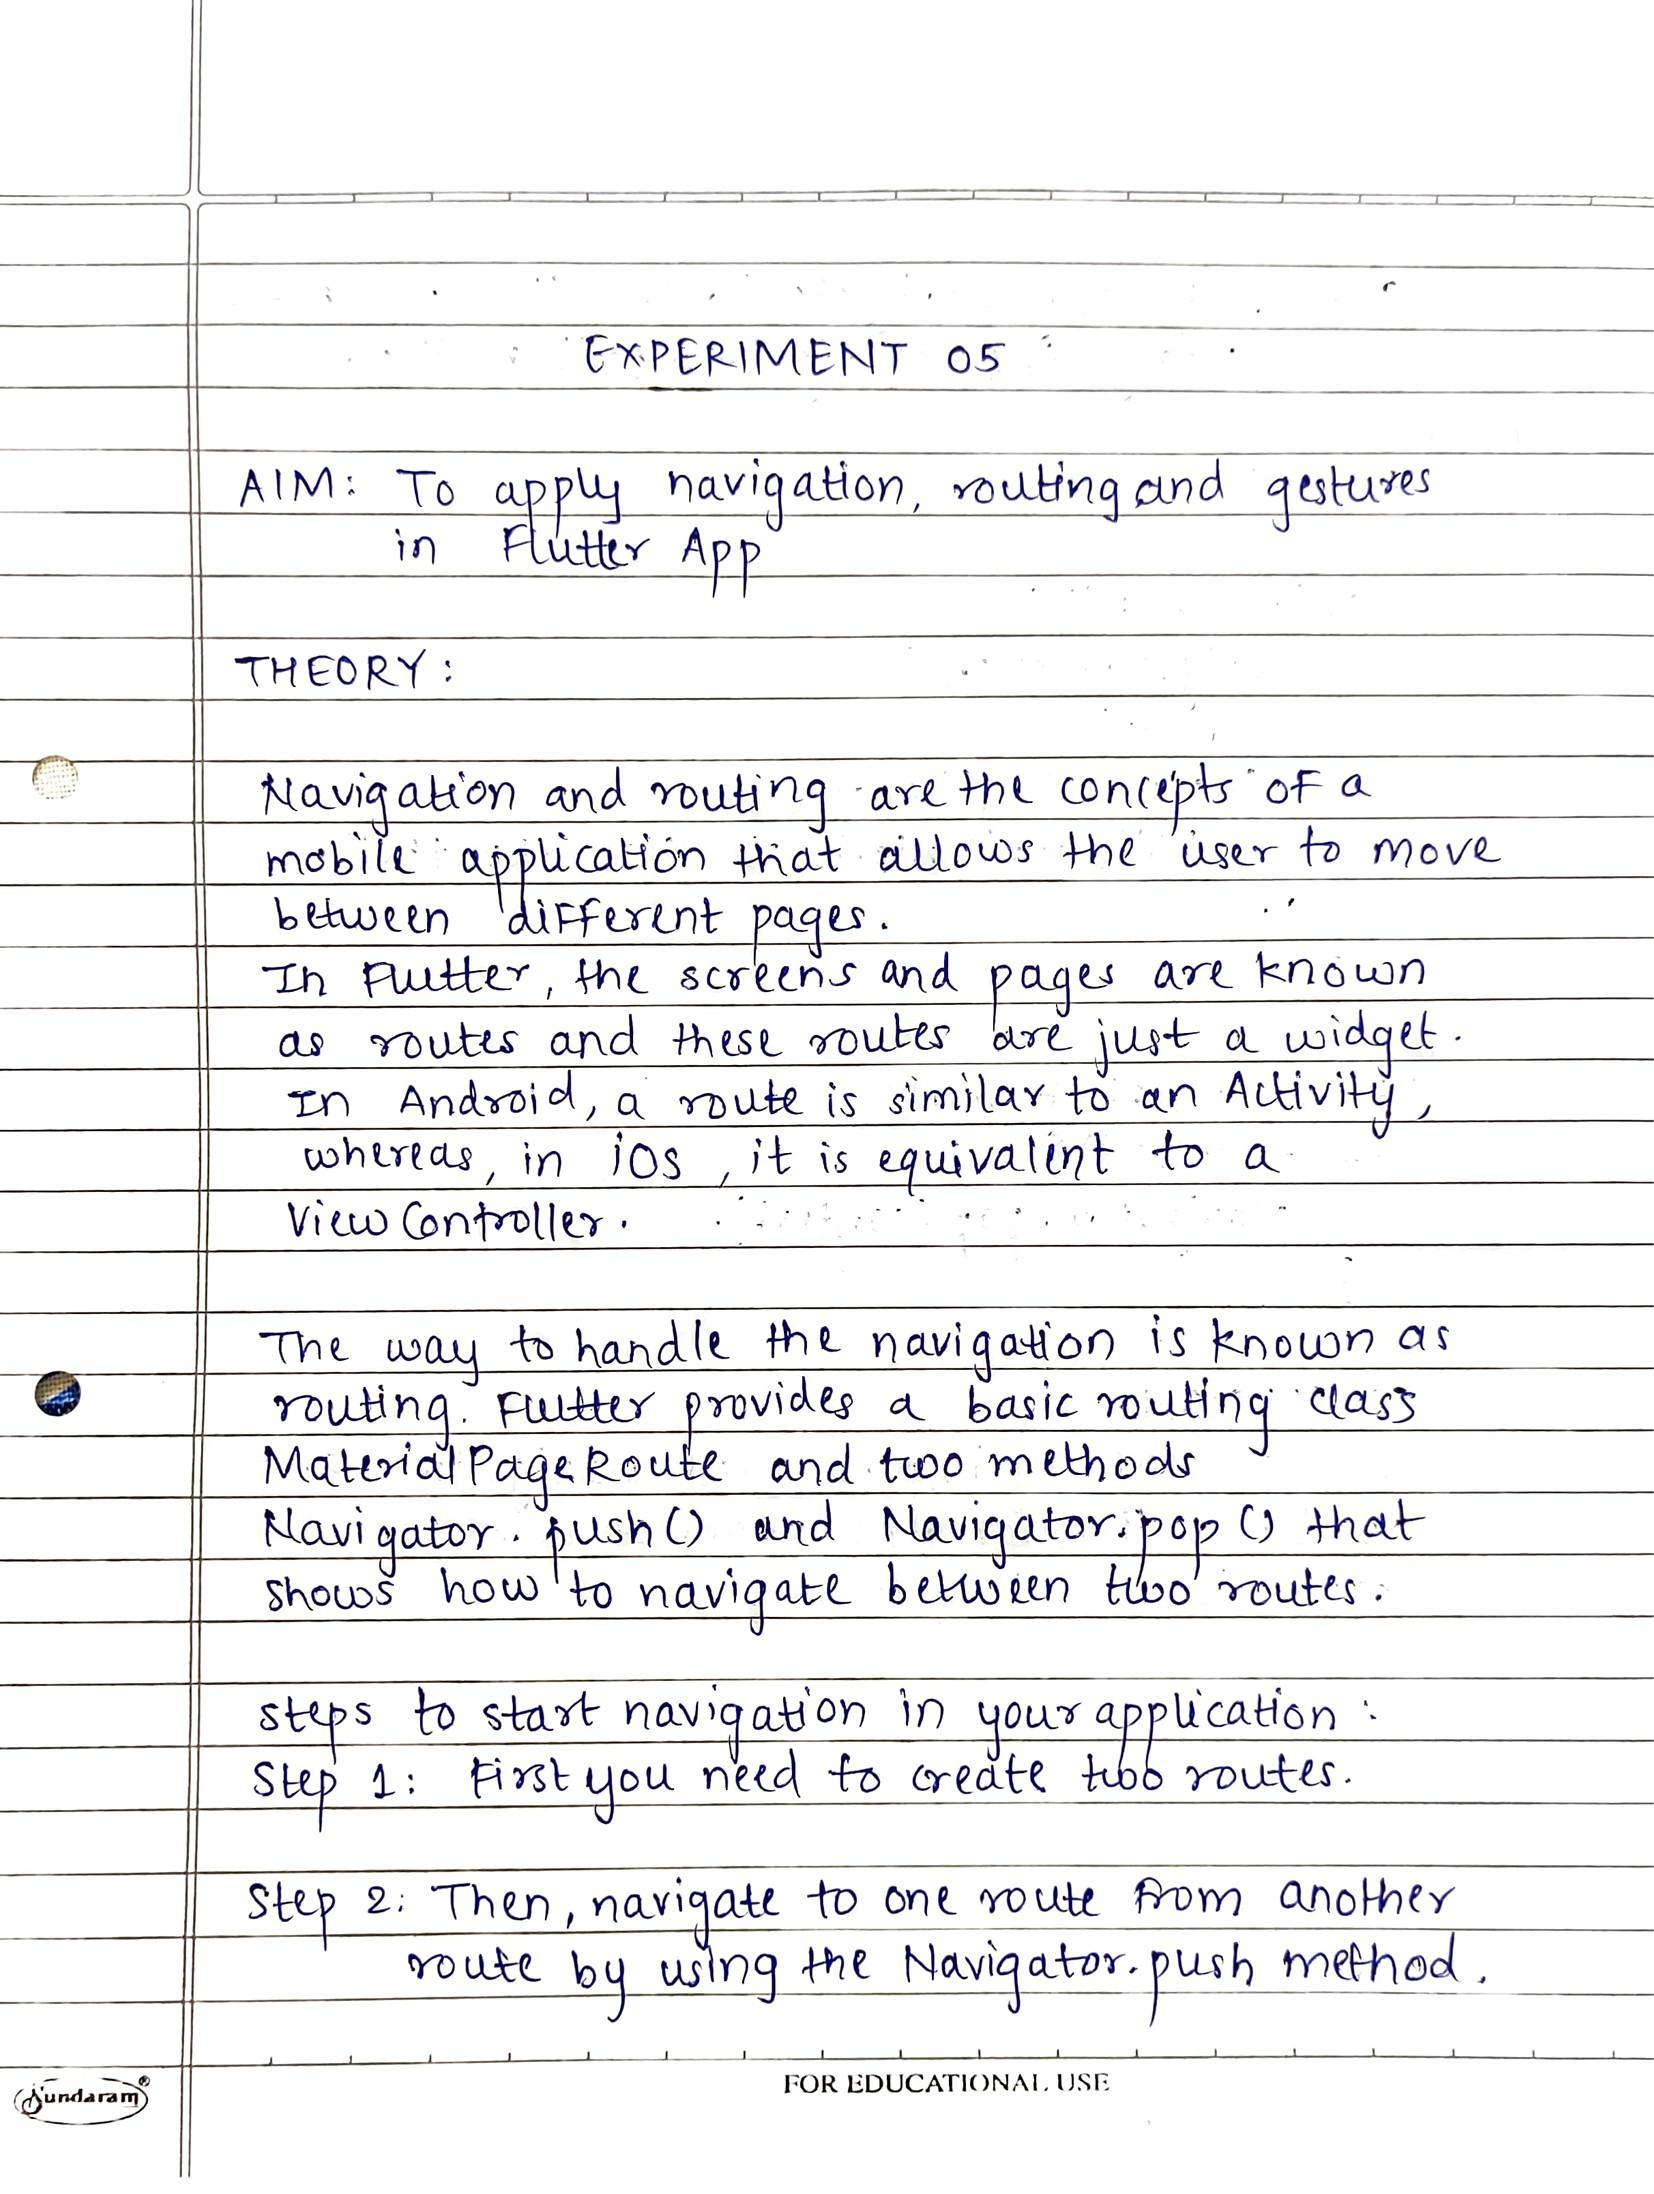 EXPERIMENT 05
AIM: To apply navigation, routing and gestures
in Flutter App
THEORY:
Navigation and routing are the concepts of a
mobile application that allows the user to move
between different pages.
In Flutter, the screens and pages are known
as routes and these routes are just a widget.
In Android, a route is similar to an Activity,
whereas, in ios, it is equivalent to a
View Controller.
The way to handle the navigation is known as
routing. Flutter provides a basic routing class
MaterialPageRoute and two methods
Navigator.push() and Navigator.pop() that
shows how to navigate between two routes.
steps to start navigation in your application:
Step 1: First you need to create two routes.
Step 2: Then, navigate to one route from another
route by using the Navigator.push method.
Sundaram®
FOR EDUCATIONAL USE